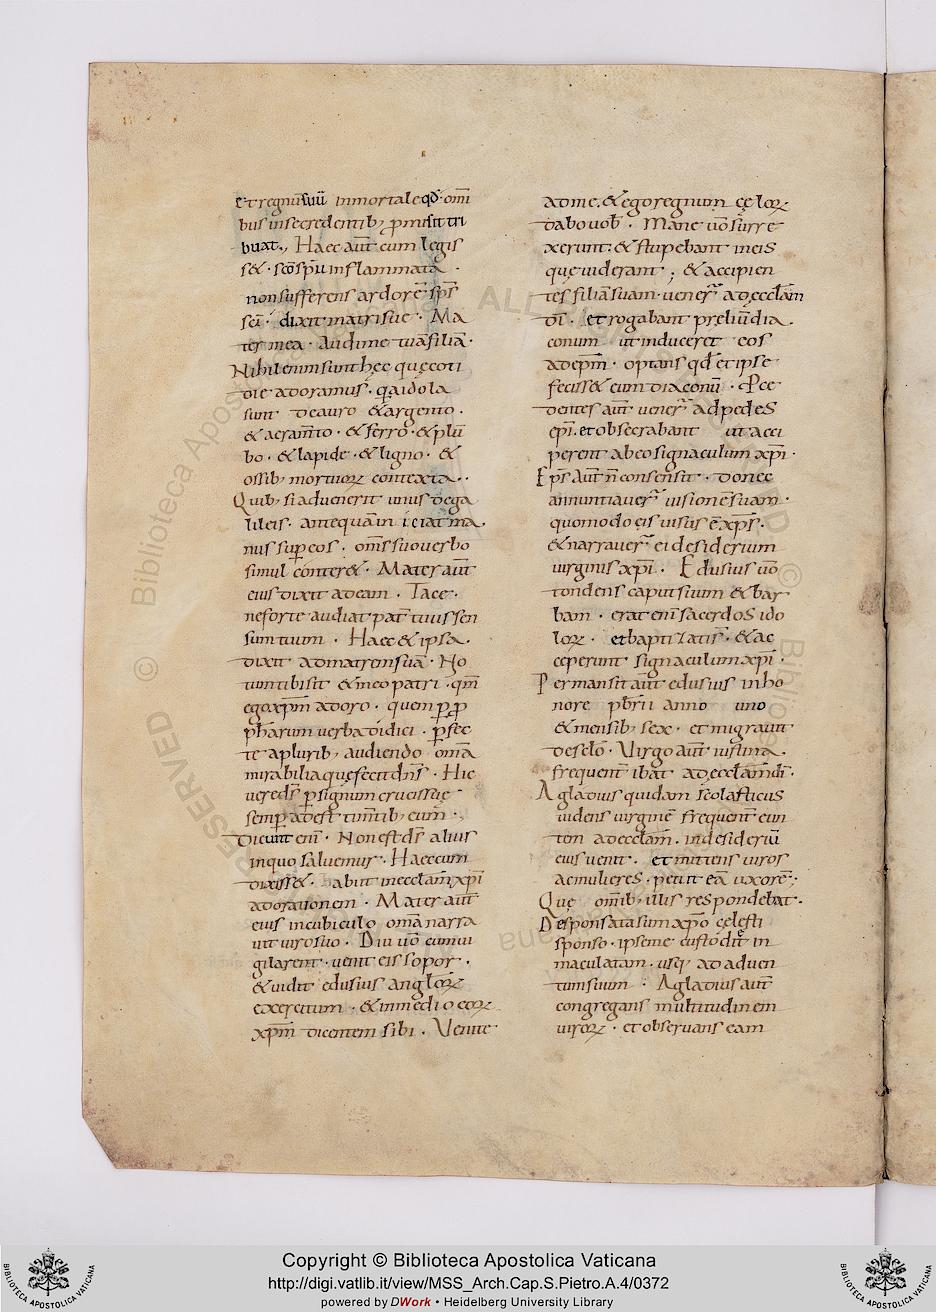 et regnū suū inmortale qđ omī
bus in se credentib; promisit tri
buat., Haec aūt cum legis
s& · sc̄o sp̄u inflammata ·
non sufferens ardorē sp̄s
sc̄i · dixit matri suę · Ma
ter mea · Audi me tuā filiā ·
Nihil enim sunt hęc quę coti
die adoramus · q̄a idola
sunt de auro & argento ·
& aeram̄to · & ferro · & plū
bo · & lapide · & ligno · &
ossib; mortuoꝝ contexta ·
Quib; si advenerit unus de ga
lileis · antequam iciat ma
nus sup̱ eos · om̄s suo verbo
simul conter& · Mater aūt
eius dixit ad eam · Tace ·
ne forte audiat pat̄ tuus sen
sum tuum · Haec & ipsa ·
dixit ad matrem suā · No
tum tibi sit & meo patri · qm̄
ego xp̄m adoro · quem p̱ p̱
ph̄arum verba didici · p̱fec
te a plurib; audiendo om̄a
mirabilia quę fecit dn̄s · Hic
vere d̄s p̱ signum crucis suę
semp̱ adest tim̄tib; eum ·
Dicunt enī · Non est d̄s alius
in quo salvemur · Haec cum
dixiss& · abiit in eccl̄am xp̄i
adorationem · Mater aūt
eius in cubiculo om̄a narra
vit viro suo · Diu v̄o eum vi
gilarent · venit eis sopor ·
& vidit edusius angl̄oꝝ
exercitum · & in medio eoꝝ
xp̄m dicentem sibi · Venite
ad me · & ego regnum cęloꝝ
dabo vob̄ · Mane v̄o surre
xerunt · & stupebant in eis
quę viderant ; & accipien
tes filiā suam · vener̄ ad eccl̄am
dī · et rogabant pręliū dia
conum · ut induceret eos
ad ep̄m · optans qđ et ipse
fecisse eum diaconū · Pce
dentes aūt vener̄ ad pedes
ep̄i · et obsecrabant ut acci
perent ab eo signaculum xp̄i ·
Ep̄s aūt n̄ consensit · donec
annuntiaver̄ visionē suam ·
quomodo eis visus ē xp̄s ·
& narraver̄ ei desiderium
virginis xp̄i · Edusius v̄o
tondens caput suum & bar
bam · erat enī sacerdos ido
loꝝ · et baptizatis · & ac
ceperunt signaculum xp̄i ·
Permansit aūt edusius in ho
nore pb̄rii anno uno
& mensib; sex · et migravit
de sęlo · Virgo aūt iustina ·
frequent̄ ibat ad eccl̄am dī ·
Agladius quidam scolasticus
videns virginē frequent̄ eun
tem ad eccl̄am · in desideriū
eius venit · et mittens viros
ac mulieres · petiit eā uxorē ;
Quę omīb; illis respondebat ·
Desponsata sum xp̄o cęlesti
sponso · ipse me custodit in
maculatam · usq; ad adven
tum suum · Agladius aūt
congregans multitudinem
viroꝝ · et observans eam
© Biblioteca Apostolica Vaticana · ALL RIGHTS RESERVED
Copyright © Biblioteca Apostolica Vaticana
http://digi.vatlib.it/view/MSS_Arch.Cap.S.Pietro.A.4/0372
powered by DWork • Heidelberg University Library
BIBLIOTECA APOSTOLICA VATICANA
BIBLIOTECA APOSTOLICA VATICANA